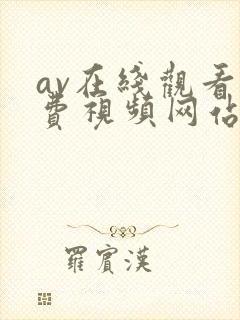 av在綫觀看
費視頻网佔
羅賓漢